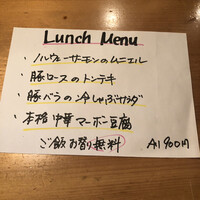 Lunch Menu
・ノルウェーサーモンのムニエル
・豚ロースのトンテキ
・豚バラの冷しゃぶサラダ
・本格中華マーボー豆腐
ご飯お替り無料 All 900円